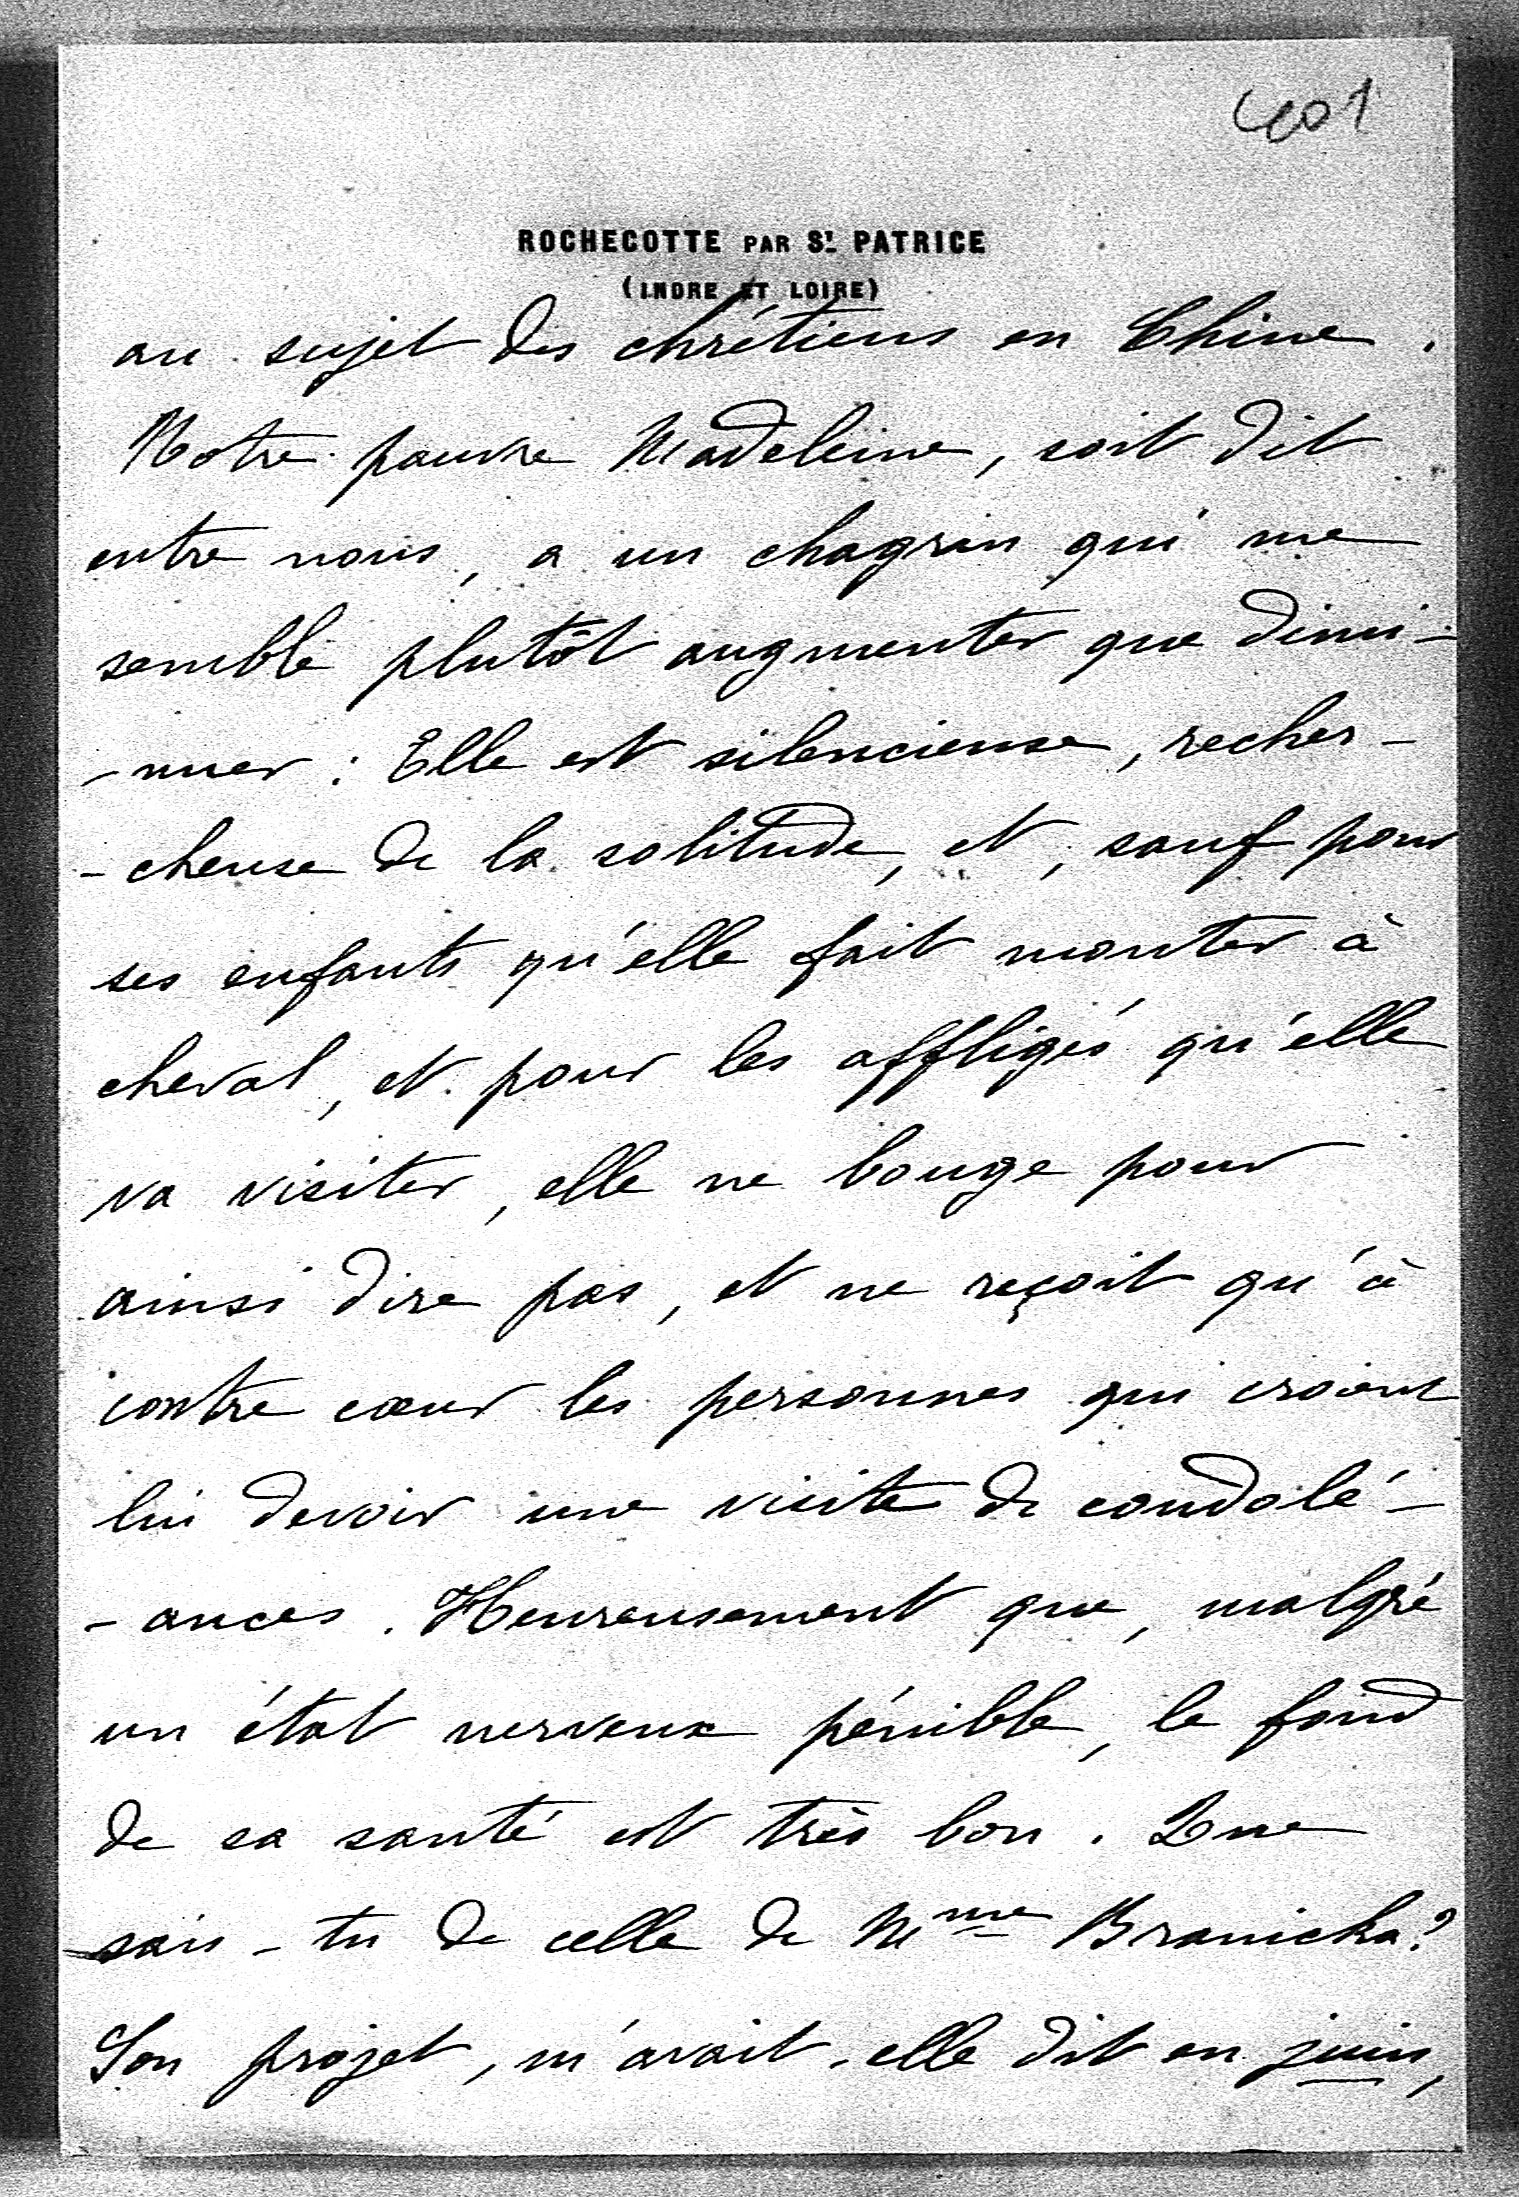 401
ROCHECOTTE PAR ST PATRICE
(INDRE ET LOIRE)
au sujet des chrétiens en Chine.
Notre pauvre Madeleine, soit dit
entre nous, a un chagrin qui me
semble plutôt augmenter que dimi-
-nuer : Elle est silencieuse, recher-
-cheuse de la solitude, et, sauf pour
ses enfants qu'elle fait monter à
cheval, et pour les affligés qu'elle
va visiter, elle ne bouge pour
ainsi dire pas, et ne reçoit qu'à
contre cœur les personnes qui croient
lui devoir une visite de condolé-
-ances. Heureusement que, malgré
un état nerveux pénible, le fond
de sa santé est très bon. Que
sais-tu de celle de Mme Branicka?
Son projet, m'avait-elle dit en juin,